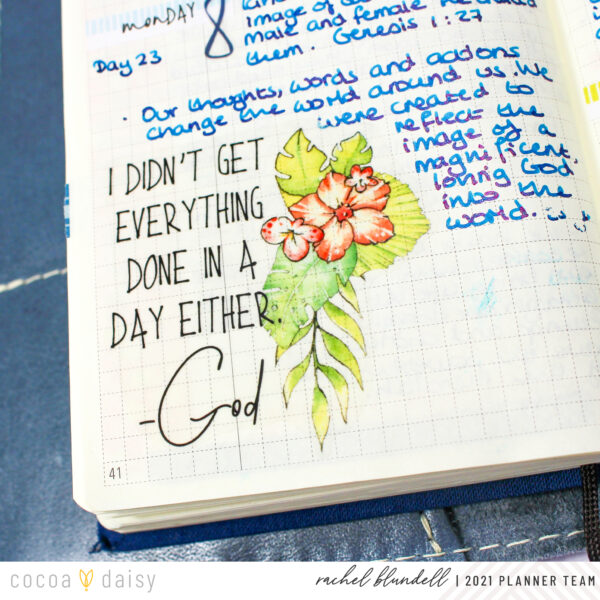 MONDAY
8
image of
male and female he created
them. Genesis 1:27
Day 23
• Our thoughts, words and actions
change the world around us. We
were created to
reflect the
image of a
magnificent,
loving God
into the
world.
I DIDN'T GET
EVERYTHING
DONE IN A
DAY EITHER.
-God
41
cocoa daisy
rachel blundell | 2021 PLANNER TEAM